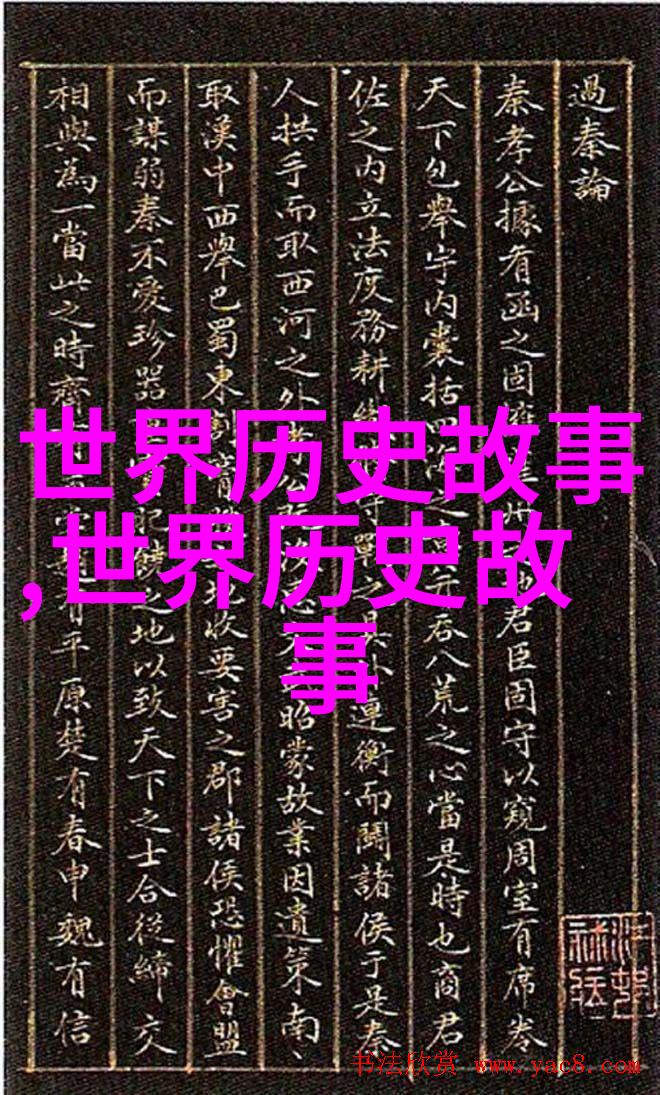 過秦論
秦孝公據有函之固 君臣固守以窺周室有席卷
天下包舉宇內囊括四海之 吞八荒之心當是時也商君
佐之內立法度務耕 守戰之具 連衡而鬭諸侯于是秦
人拱手而取西河之外 昭蒙故業因遺策南、
取漢中西舉巴蜀東割膏 收要害之郡諸侯恐懼會盟
而謀弱秦不愛珍器 肥饒之地以致天下之士合從締交
相與為一當此之時齊 有平原楚有春申魏有信
世界历史故事
,世界历史故
事
书法欣赏 www.yac8.com